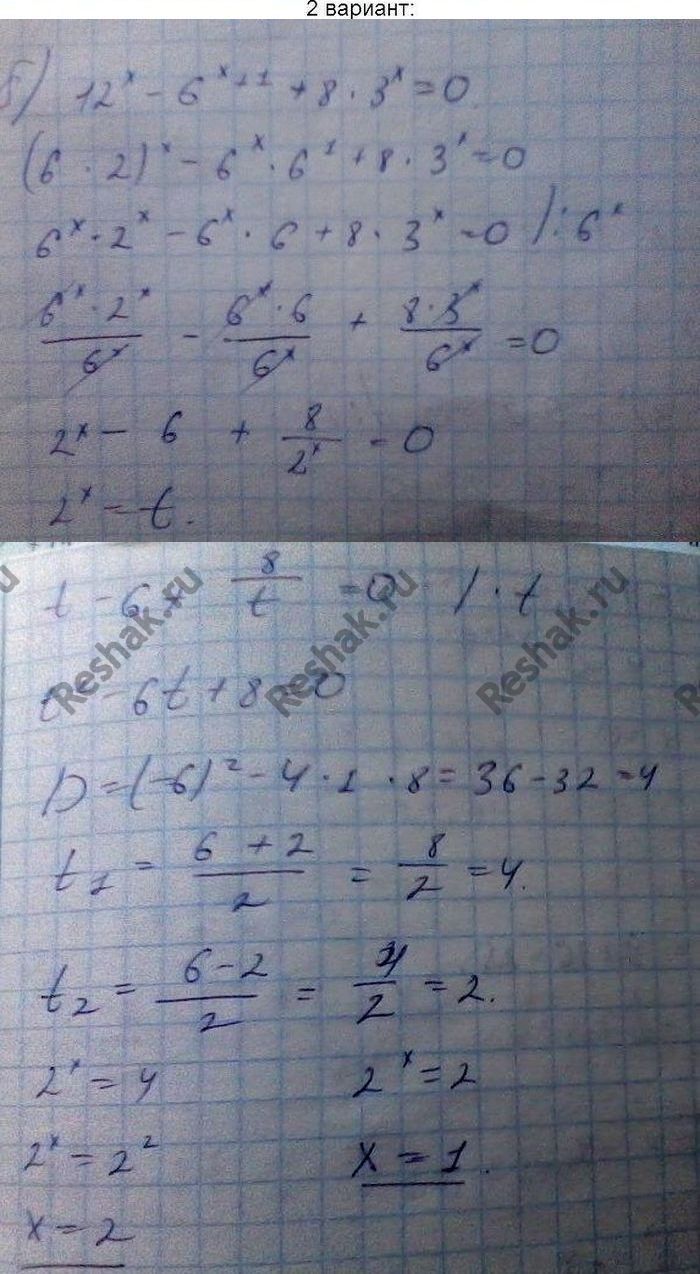 2 вариант:
б) 12^x - 6^(x+1) + 8 · 3^x = 0
(6 · 2)^x - 6^x · 6^1 + 8 · 3^x = 0
6^x · 2^x - 6^x · 6 + 8 · 3^x = 0 | : 6^x
(6^x · 2^x)/6^x - (6^x · 6)/6^x + (8 · 3^x)/6^x = 0
2^x - 6 + 8/2^x = 0
2^x = t.
t - 6 + 8/t = 0 | · t
t² - 6t + 8 = 0
Reshak.ru Reshak.ru Reshak.ru
D = (-6)² - 4 · 1 · 8 = 36 - 32 = 4
t₁ = (6 + 2)/2 = 8/2 = 4.
t₂ = (6 - 2)/2 = 4/2 = 2.
2^x = 4 2^x = 2
2^x = 2² x = 1.
x = 2